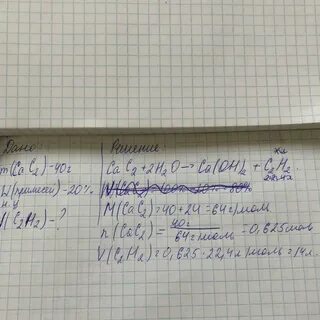 Дано:
m(CaC2)-40г
W(примесей)-20%
н.у
V(C2H2)-?
Решение:
CaC2+2H2O→Ca(OH)2+C2H2.
22,4л.
M(CaC2)=40+24=64г/моль
n(CaC2)=40г/64г/моль=0,625моль
V(C2H2)=0,625·22,4л/моль=14л.